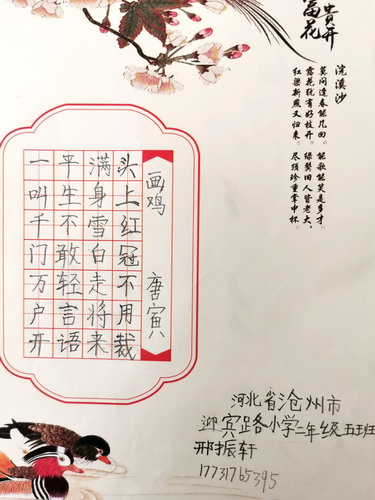 富贵花开
浣溪沙
莫问逢春能几回 能歌能笑是多才。
露花犹有好枝开 绿鬓旧人皆老大,
红梁新燕又归来 尽须珍重掌中杯。
画鸡 唐寅
头上红冠不用裁
满身雪白走将来
平生不敢轻言语
一叫千门万户开
河北省沧州市
迎宾路小学二年级五班
邢振轩
17731765395